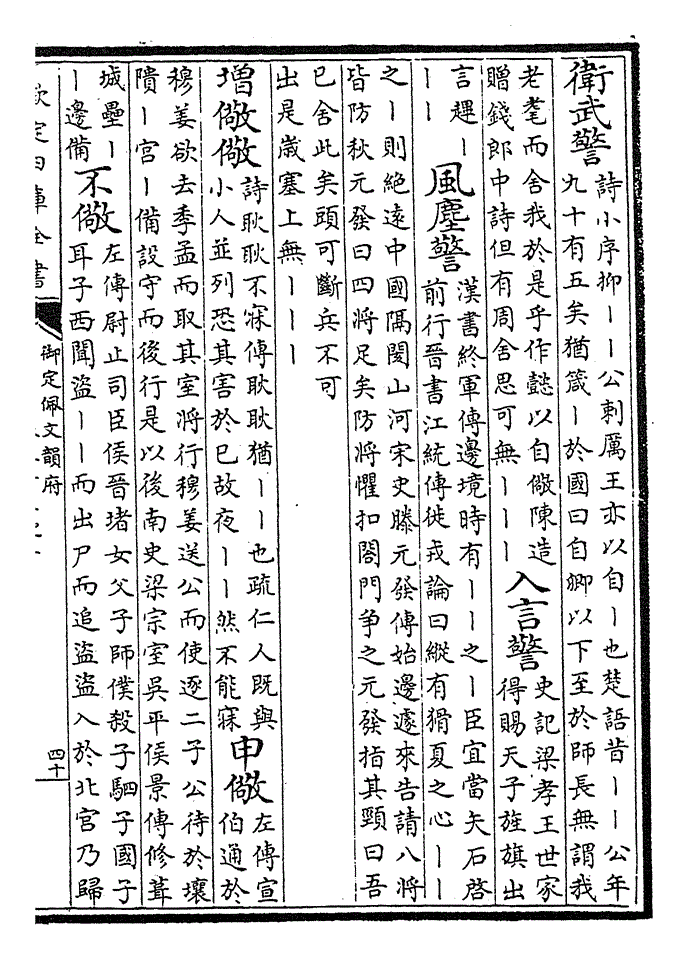 衛武警
詩小序抑丨丨公刺厲王亦以自丨也楚語昔丨丨公年
九十有五矣猶箴丨於國曰自卿以下至於師長無謂我
老耄而舍我於是乎作懿以自儆陳造
贈錢郎中詩但有周舍思可無丨丨丨
入言警
史記梁孝王世家
得賜天子旌旗出
言趩丨
丨丨
風塵警
漢書終軍傳邊境時有丨丨之丨臣宜當矢石啓
前行晉書江統傳徙戎論曰縱有猾夏之心丨丨
之丨則絶逺中國隔閡山河宋史滕元發傳始邊遽來告請八將
皆防秋元發曰四將足矣防將懼扣閤門争之元發指其頸曰吾
已舍此矣頭可斷兵不可
出是歲塞上無丨丨丨
增儆儆
詩耿耿不寐傳耿耿猶丨丨也疏仁人既與
小人並列恐其害於已故夜丨丨然不能寐
申儆
左傳宣
伯通於
穆姜欲去季孟而取其室將行穆姜送公而使逐二子公待於壞
隤丨宮丨備設守而後行是以後南史梁宗室吳平侯景傳修葺
城壘丨
丨邊備
不儆
左傳尉止司臣侯晉堵女父子師僕殺子駟子國子
耳子西聞盜丨丨而出尸而追盜盜入於北宮乃歸
欽定四庫全書
御定佩文韻府
四十